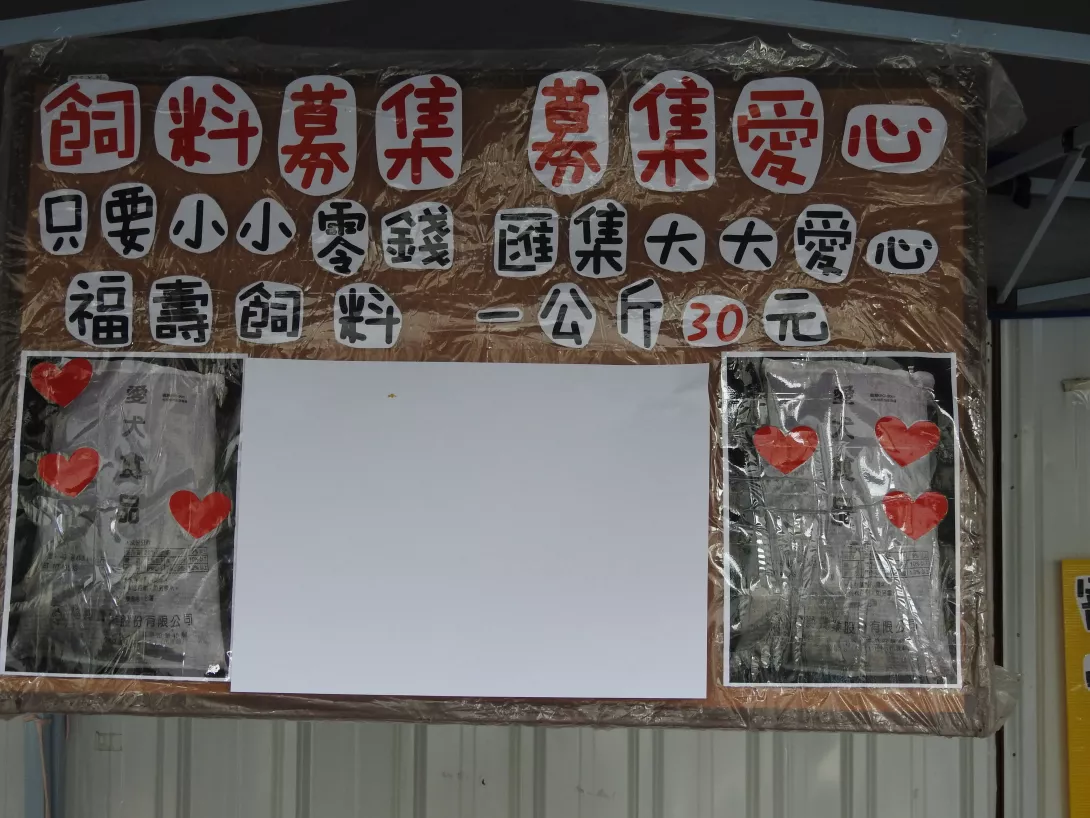 飼料募集 募集愛心
只要小小零錢 匯集大大愛心
福壽飼料 一公斤30元
愛犬食品
股份有限公司
愛犬食品
股份有限公司